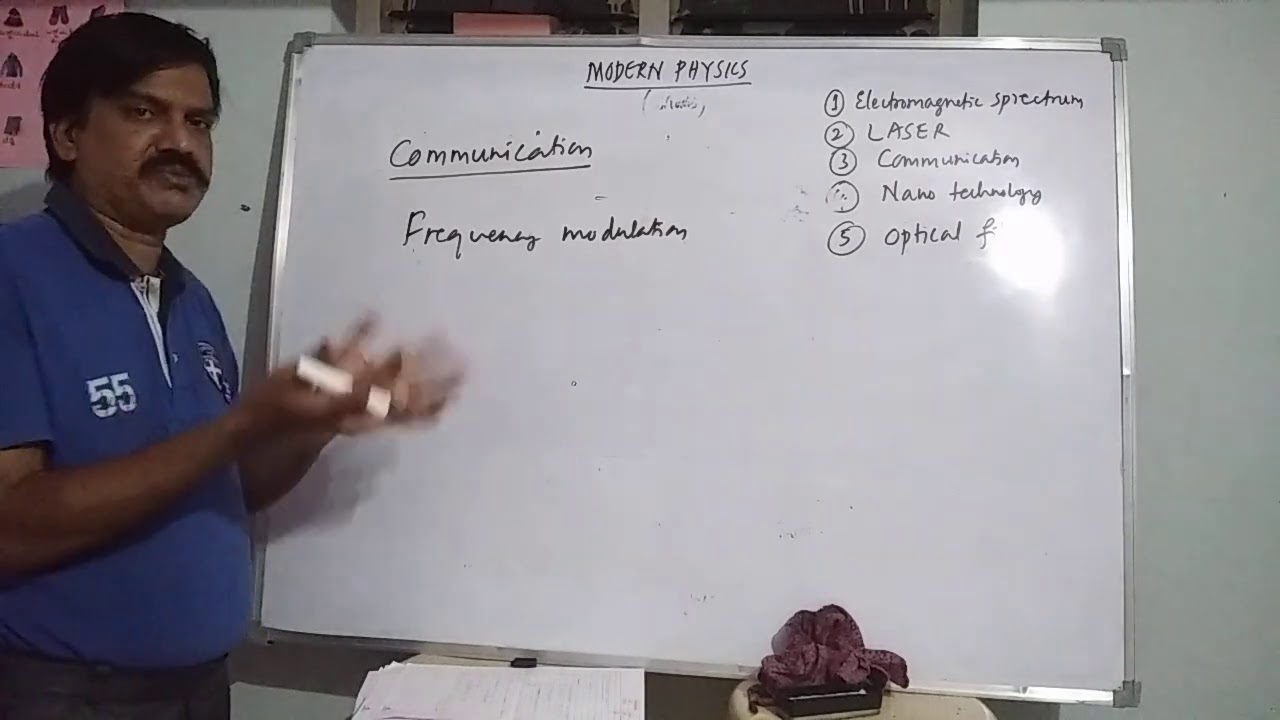 MODERN PHYSICS
Communication
Frequency modulation
① Electromagnetic spectrum
② LASER
③ Communication
Nano technology
⑤ Optical
55